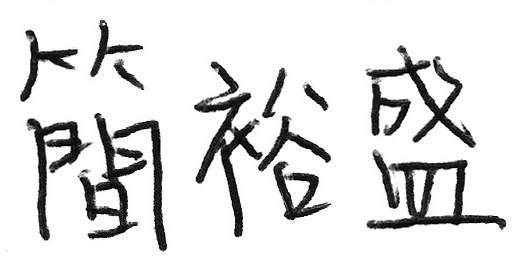 簡裕盛